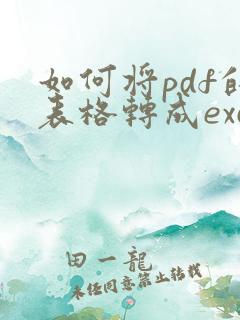 如何將pdf的
表格轉成exc
田一龍
未經同意禁止轉載